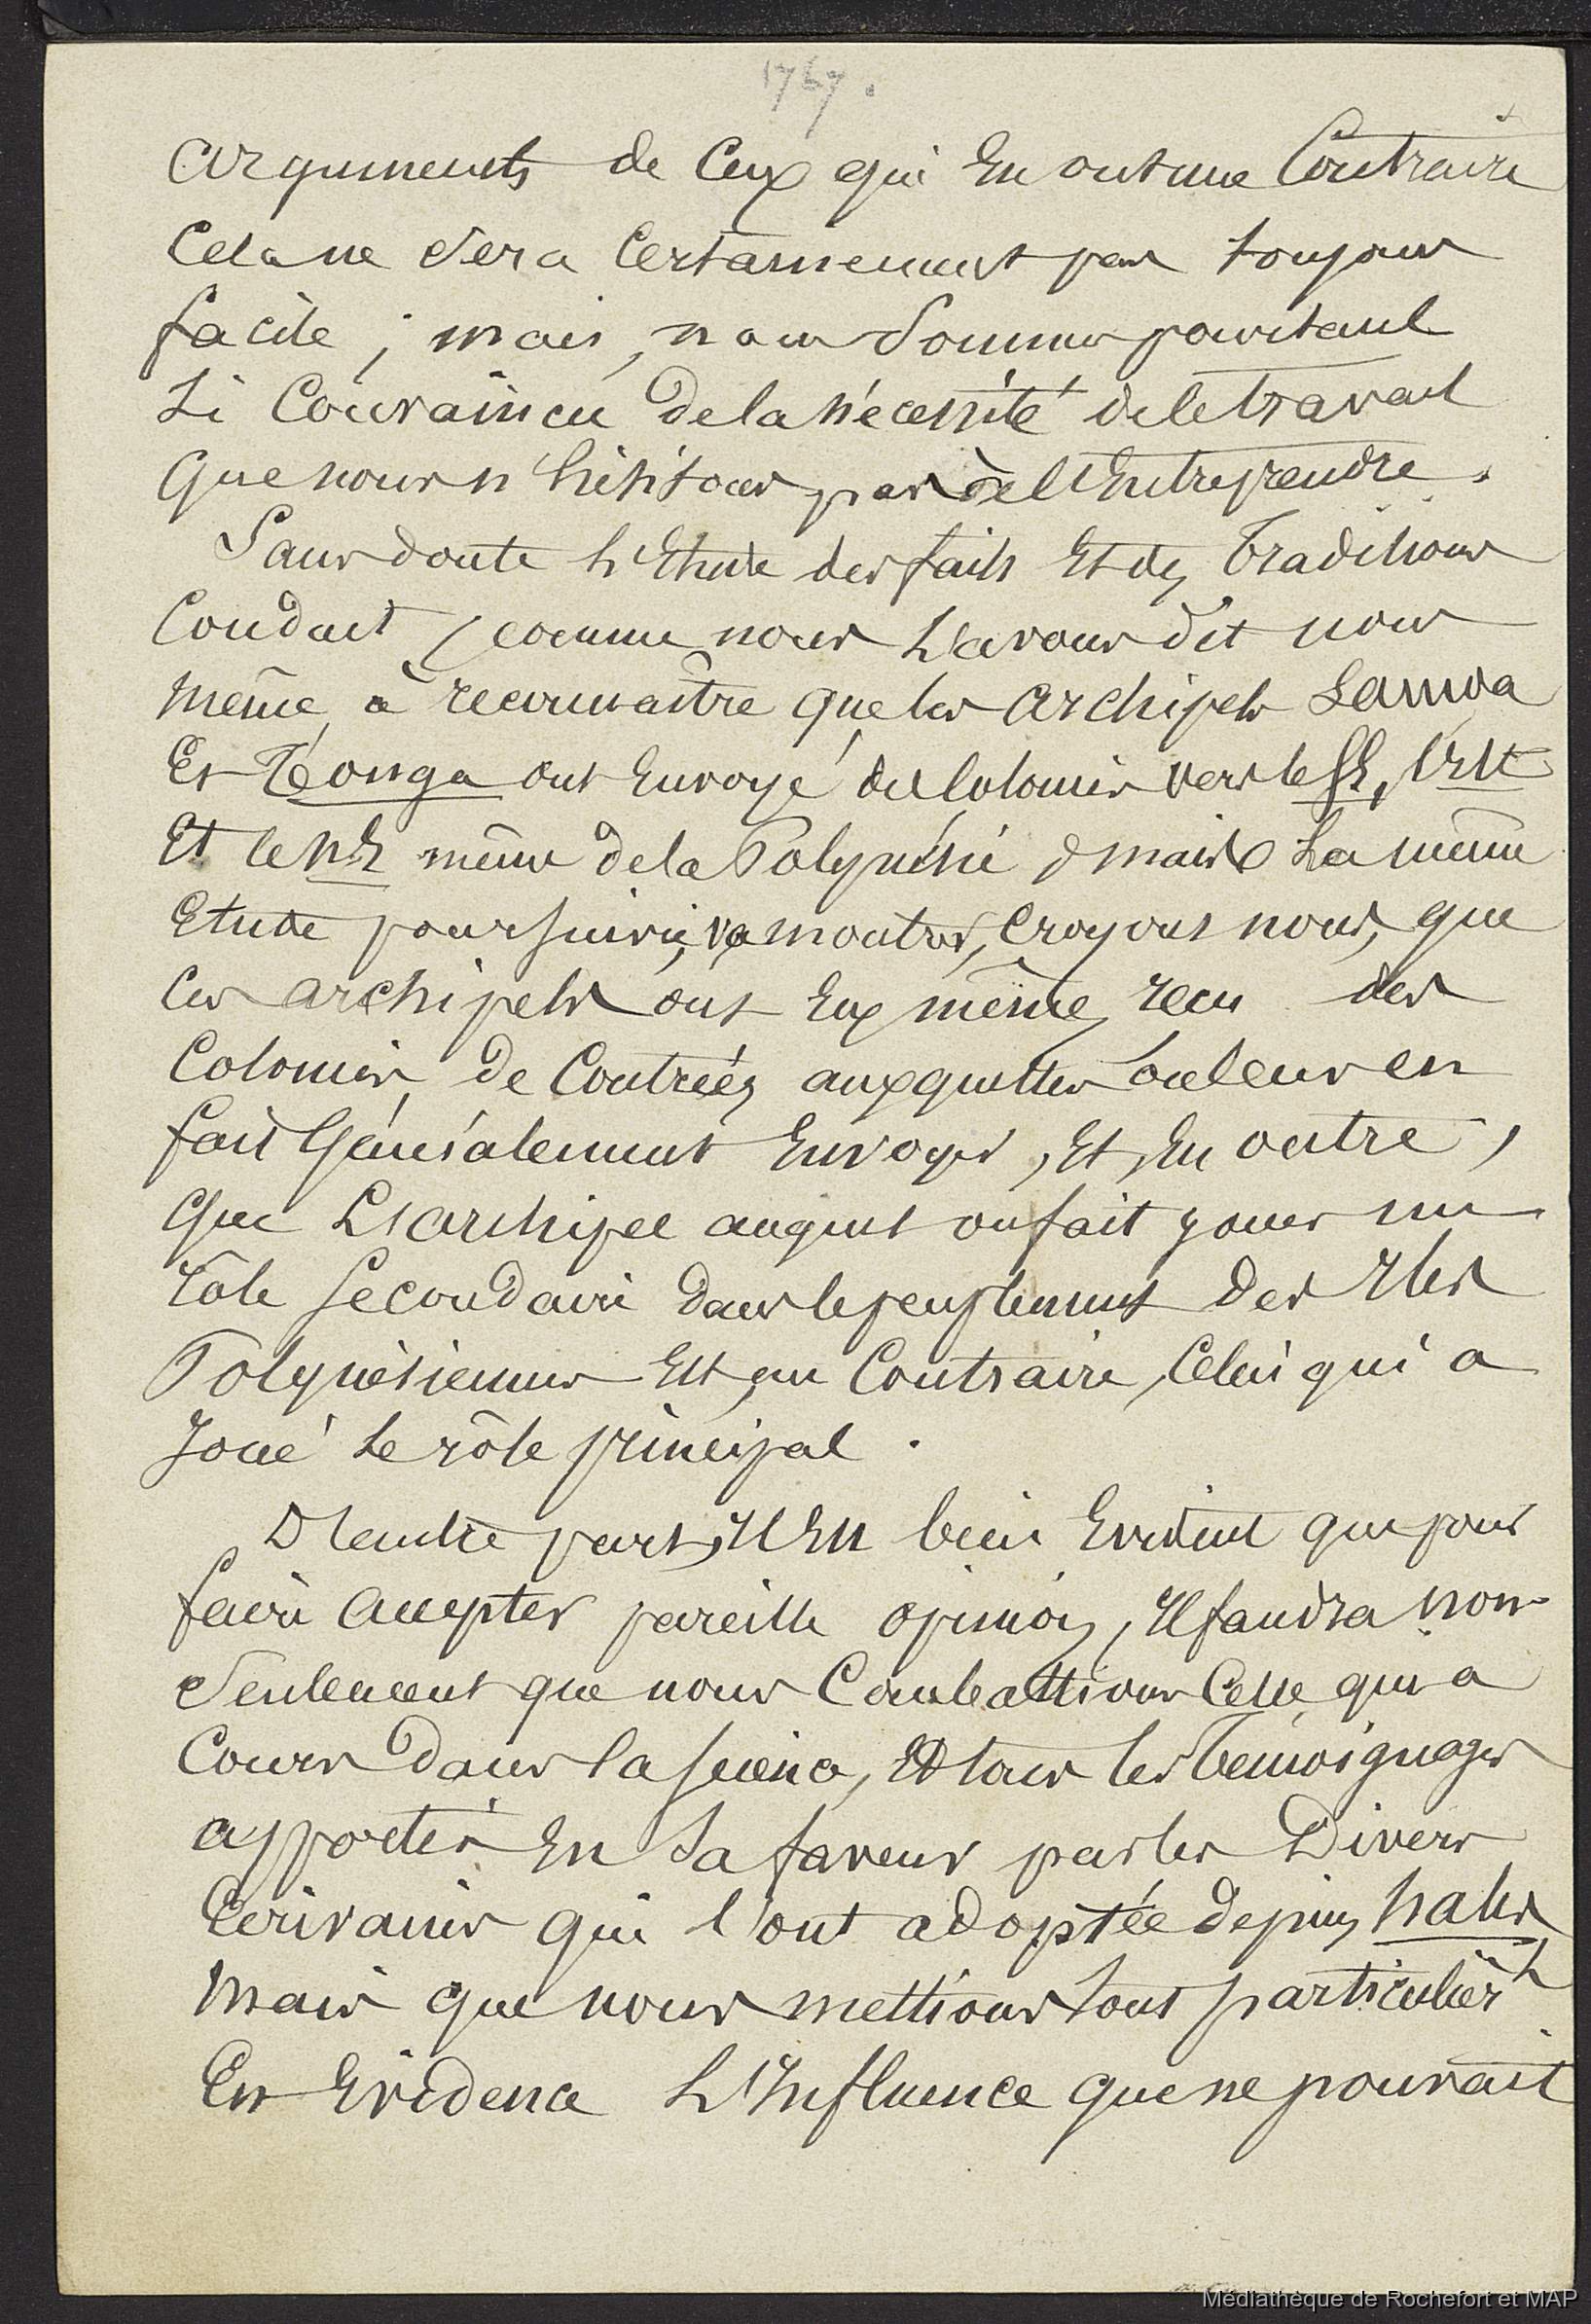 1767.
arguments de Ceux qui En ont une Contraire
Cela ne Sera Certainement pas toujours
facile ; mais, nous Sommes pourtant
Si Convaincu de la nécessité de le travail
Que nous n'hésitons pas à l'Entreprendre.
Sans doute L'Etude des faits Et des Traditions
Conduit, comme nous L'avons dit nous
même, à reconnaître que les archipels Samoa
Et Tonga ont Envoyé des Colonies vers le SE, l'Est
Et le NE même de la Polynésie ; mais La même
Etude poursuivie, va montrer, Croyons nous, que
Ces archipels ont Eux même, reçu des
Colonies, de Contrées auxquelles on leur en
fait Généralement Envoyer, Et, En outre,
Que L'archipel auquel on fait jouer un
rôle Secondaire dans le peuplement des Iles
Polynésiennes Est, au Contraire, Celui qui a
Joué Le rôle principal.
D'autre part, Il Est bien Evident que pour
faire accepter pareille opinion, Il faudra non
Seulement que nous Combattions Celle qui a
Cours dans la Science, Et tous les Témoignages
apportés En Sa faveur par les Divers
Ecrivains qui l'ont adoptée depuis hales,
Mais que nous mettions tout particulièrt
En Evidence L'Influence que ne pouvait
Médiathèque de Rochefort et MAP